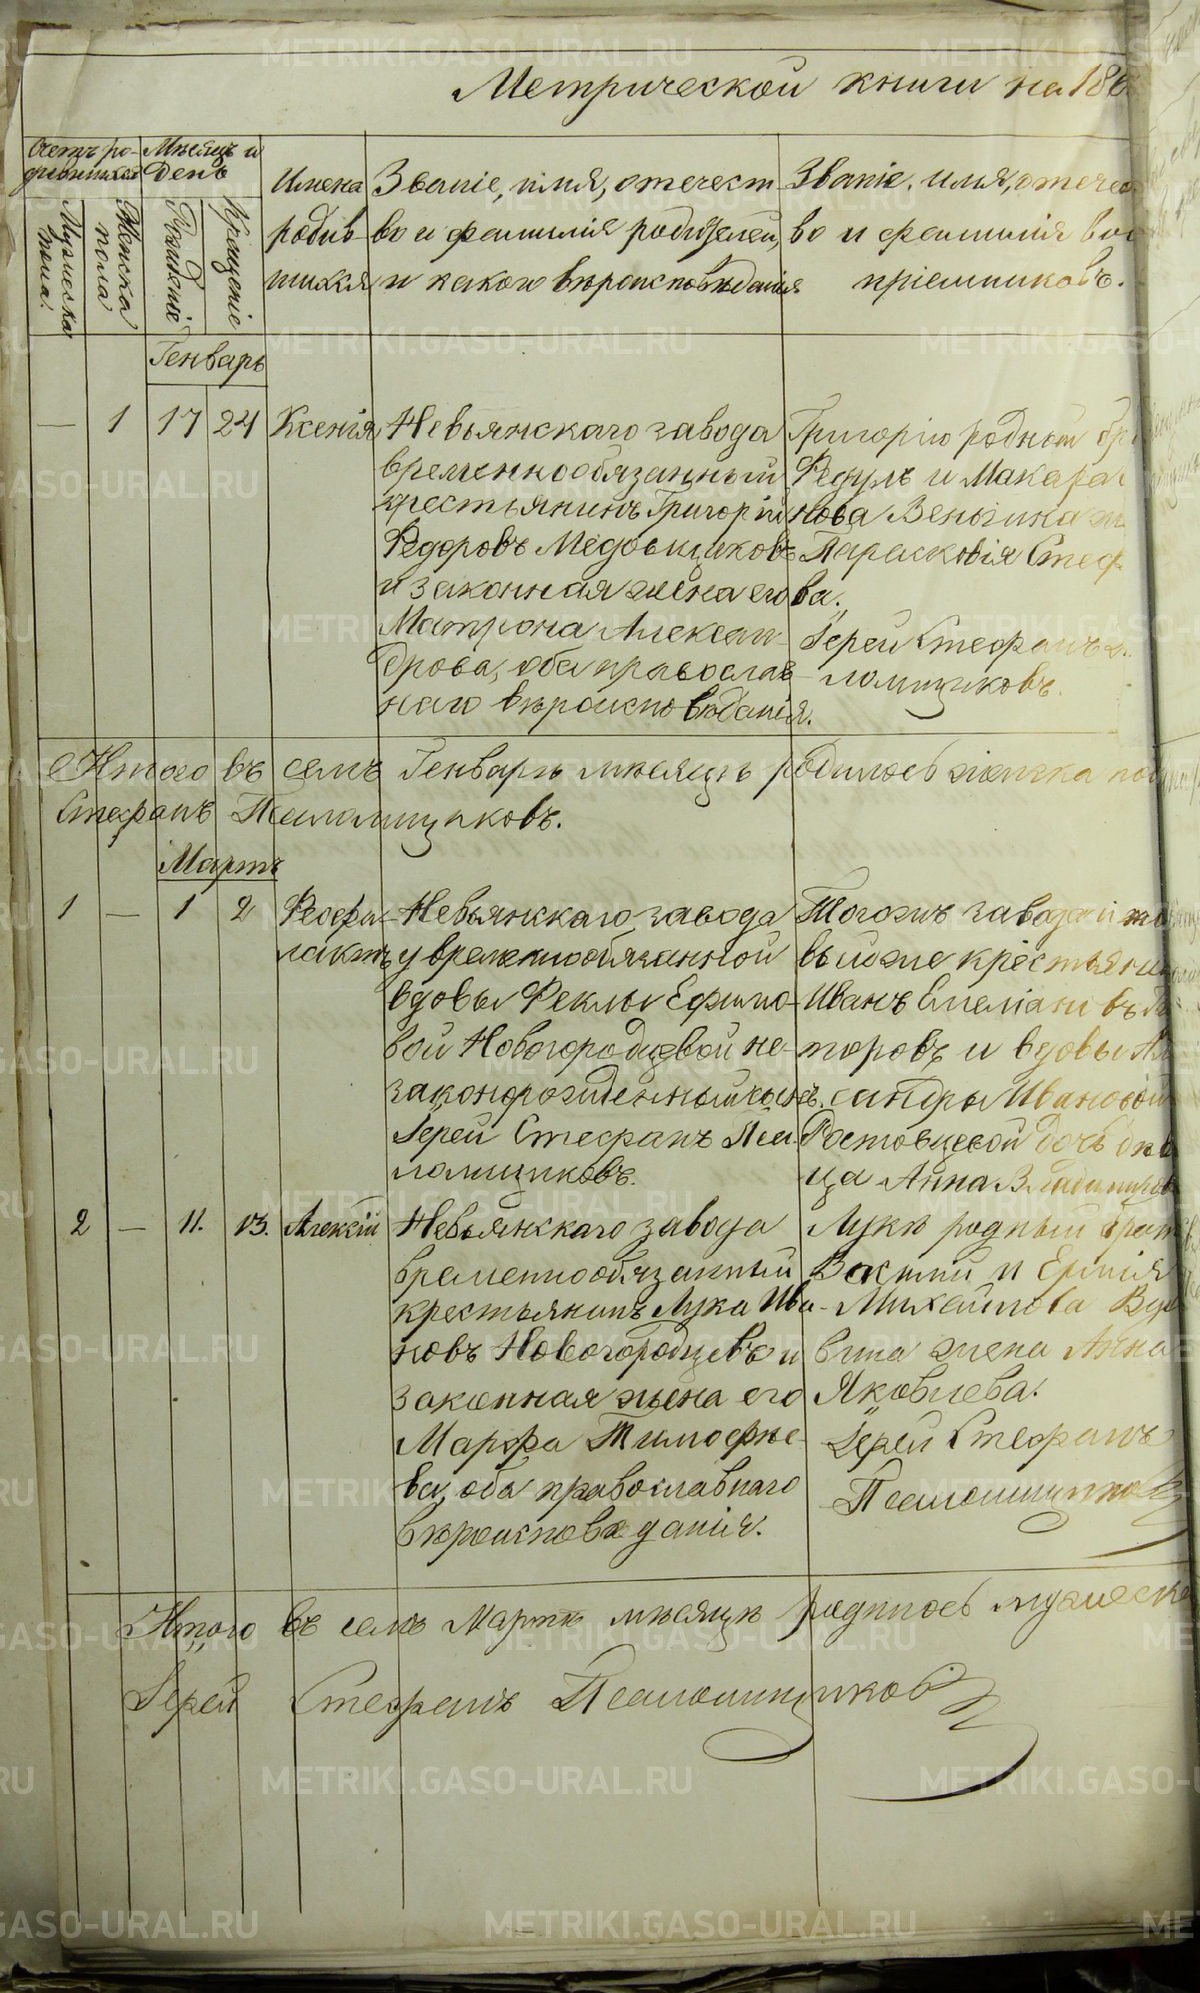 Метрической книги на 186
Счетъ ро-
дившихся
Мѣсяцъ и
День
Мужеска
пола.
Женска
пола
Рожденіе
Крещеніе
Имена
родив-
шихся
Званіе, имя, отечест
во и фамилія родителей,
и какого вѣроисповѣданія
Званіе, имя, отечес
во и фамилія вос
пріемниковъ.
Генварь
— 1 17 24 Ксенія
Невьянскаго завода
временнообязанный
крестьянинъ Григорій
Федоровъ Медовщиковъ
и законная жена его
Матрона Алексан-
дрова, оба православ-
наго вѣроисповѣданія.
Григорію родный бра
Федулъ и Макара
нова Веньзина ж
Парасковія Стеф
ва.
Іерей Стефанъ
ломщиковъ.
Итого въ семъ Генварѣ мѣсяцѣ родилось женска пол
Стефанъ Псаломщиковъ.
Мартъ
1 — 1 2 Феофи-
лактъ
Невьянскаго завода
у временнообязанной
вдовы Феклы Ефимо-
вой Новогородцевой не-
законорожденный сынъ.
Іерей Стефанъ Пса-
ломщиковъ.
Тогожъ завода и
вышле крестьянин
Иванъ Емеліановъ
торовъ и вдовы Ал
сандры Ивановой
Ростовцевой дочь дѣви
ца Анна Владимиров
2 — 11. 13. Алексій
Невьянскаго завода
временнообязанный
крестьянинъ Лука Ива-
новъ Новогородцевъ и
законная жена его
Марфа Тимофѣе-
ва, оба православнаго
вѣроисповѣданія.
Лукѣ родный братъ
Василій и Ермія
Михайлова
вина жена Анна
Яковлева.
Іерей Стефанъ
Псаломщиковъ
Итого въ семъ Мартѣ мѣсяцѣ родилось мужеска
Іерей Стефанъ Псаломщиковъ
METRIKI.GASO-URAL.RU